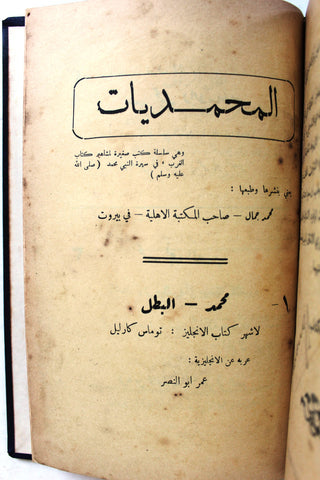 المحمديات
وهي سلسلة كتب صغيرة لمشاهير كتاب
الغرب في سيرة النبي محمد ( صلى الله
عليه وسلم )
يعني بنشرها وطبعها :
محمد جمال – صاحب المكتبة الاهلية – في بيروت
١ – محمد – البطل
لاشهر كتاب الانجليز : توماس كارليل
عربه عن الانجليزية :
عمر ابو النصر